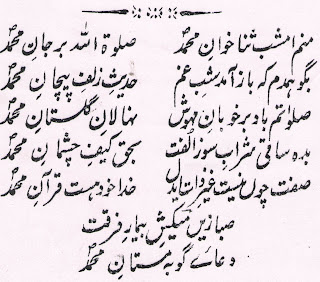 منم امشب ثناخوانِ محمدؐ صلوٰۃ اللہ بر جانِ محمدؐ
بگو ہمدم کہ باز آمد شبِ غم حدیثِ زلفِ پیچانِ محمدؐ
صلوٰتم باد بر خوبانِ مہوش نہالانِ گلستانِ محمدؐ
بدہ ساقی شراب سوز الفت بحق کیفِ چشمانِ محمدؐ
صفت چوں نیست غیر ذات ایدل خدا خود ہست قرآنِ محمدؐ
صبا زیں میکشِ بیمارِ فرقت
دعاے گو بہ مستانِ محمدؐ